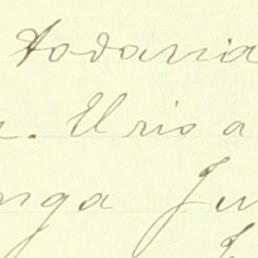 Todavia
. Uris a
nga Ju